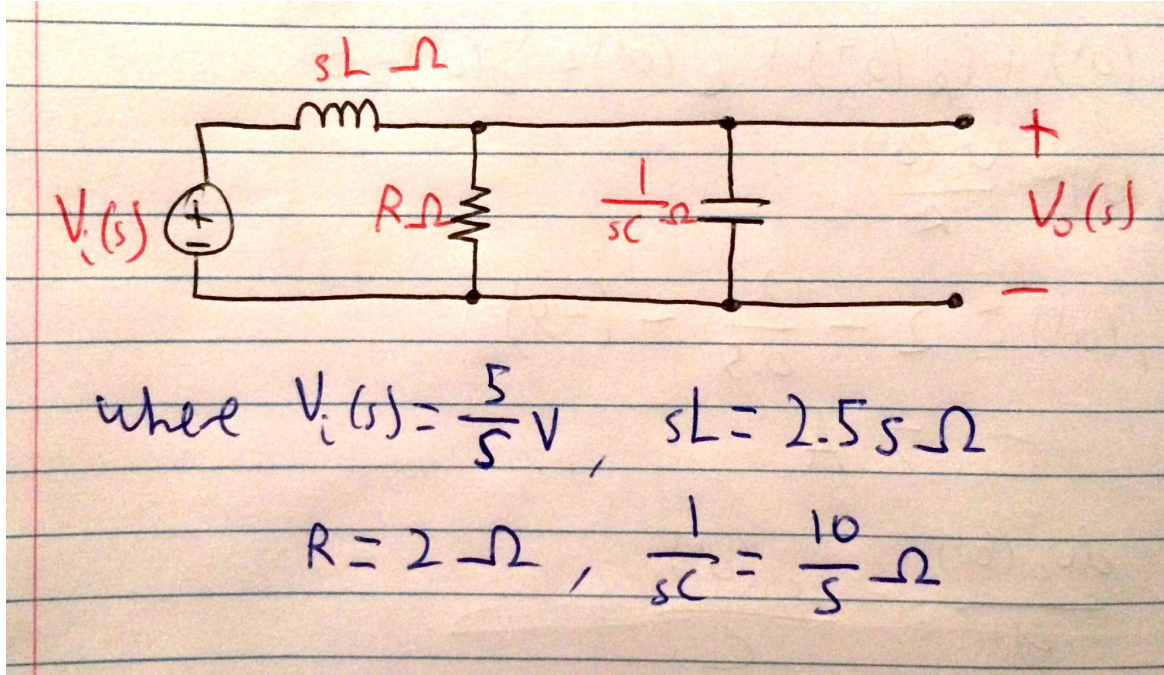 sL Ω
+
Vᵢ(s) + − RΩ 1/sC Ω V₀(s)
−
where Vᵢ(s) = 5/s V, sL = 2.5s Ω
R = 2 Ω, 1/sC = 10/s Ω